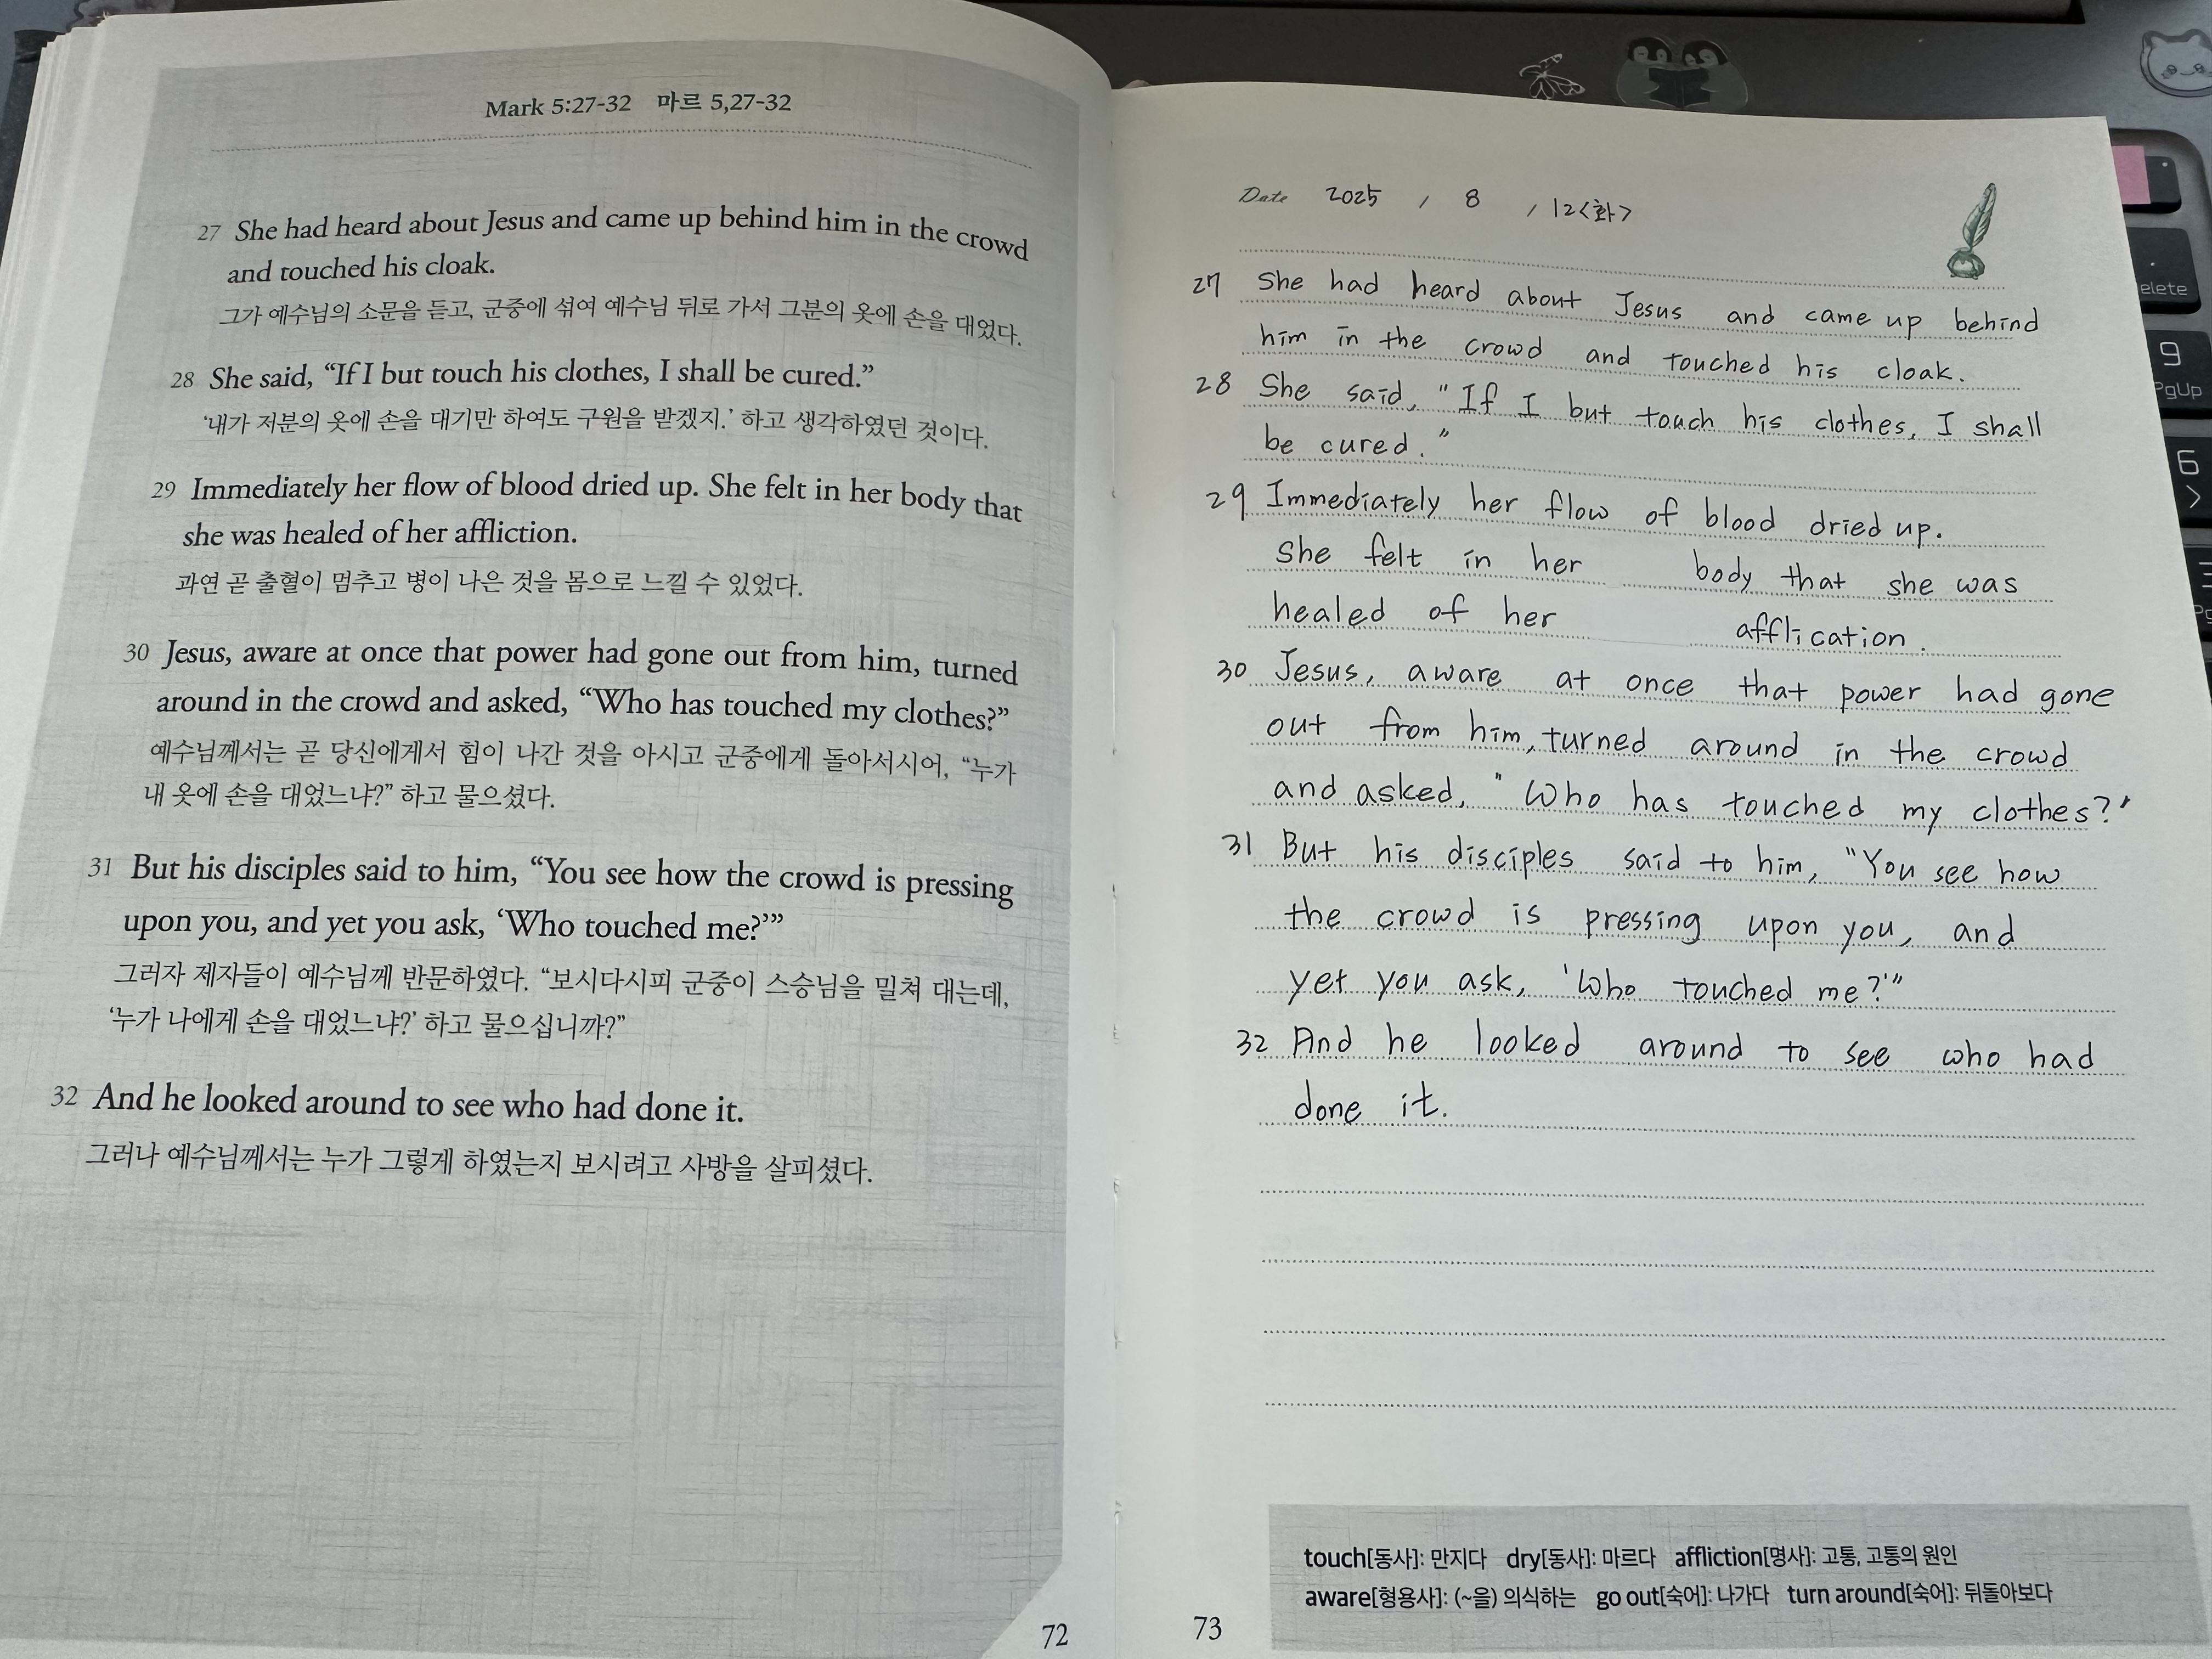 Mark 5:27-32 마르 5,27-32
27 She had heard about Jesus and came up behind him in the crowd
and touched his cloak.
그가 예수님의 소문을 듣고, 군중에 섞여 예수님 뒤로 가서 그분의 옷에 손을 대었다.
28 She said, “If I but touch his clothes, I shall be cured.”
‘내가 저분의 옷에 손을 대기만 하여도 구원을 받겠지.’ 하고 생각하였던 것이다.
29 Immediately her flow of blood dried up. She felt in her body that
she was healed of her affliction.
과연 곧 출혈이 멈추고 병이 나은 것을 몸으로 느낄 수 있었다.
30 Jesus, aware at once that power had gone out from him, turned
around in the crowd and asked, “Who has touched my clothes?”
예수님께서는 곧 당신에게서 힘이 나간 것을 아시고 군중에게 돌아서시어, “누가
내 옷에 손을 대었느냐?” 하고 물으셨다.
31 But his disciples said to him, “You see how the crowd is pressing
upon you, and yet you ask, ‘Who touched me?’”
그러자 제자들이 예수님께 반문하였다. “보시다시피 군중이 스승님을 밀쳐 대는데,
‘누가 나에게 손을 대었느냐?’ 하고 물으십니까?”
32 And he looked around to see who had done it.
그러나 예수님께서는 누가 그렇게 하였는지 보시려고 사방을 살피셨다.
72
Date 2025 / 8 / 12<화>
27 She had heard about Jesus and came up behind
him in the crowd and touched his cloak.
28 She said, "If I but touch his clothes, I shall
be cured."
29 Immediately her flow of blood dried up.
She felt in her body that she was
healed of her afflication.
30 Jesus, aware at once that power had gone
out from him, turned around in the crowd
and asked, "Who has touched my clothes?'
31 But his disciples said to him, "You see how
the crowd is pressing upon you, and
yet you ask, 'Who touched me?'"
32 And he looked around to see who had
done it.
touch[동사]: 만지다 dry[동사]: 마르다 affliction[명사]: 고통, 고통의 원인
aware[형용사]: (~을) 의식하는 go out[숙어]: 나가다 turn around[숙어]: 뒤돌아보다
73
elete
9
PgUp
6
>